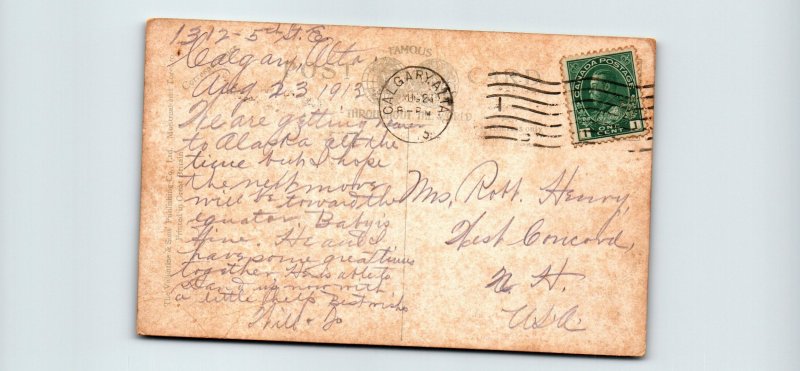 1312-5th St. E
Calgary, Alta.
Aug 23, 1913
We are getting near
to Alaska all the
time but I hope
the next move
will be toward the
equator. Baby is
fine. He and I
have some great times
together. He is able to
stand up now with
a little help. Best wishes
Will + Jo
Mrs. Robt. Henry,
West Concord,
N. H.
USA
FAMOUS
POST CARD
THROUGHOUT THE WORLD
CALGARY, ALTA
CANADA POSTAGE
1 ONE CENT 1
The Valentine & Sons' Publishing Co., Ltd., Montreal and Toronto
Printed in Great Britain